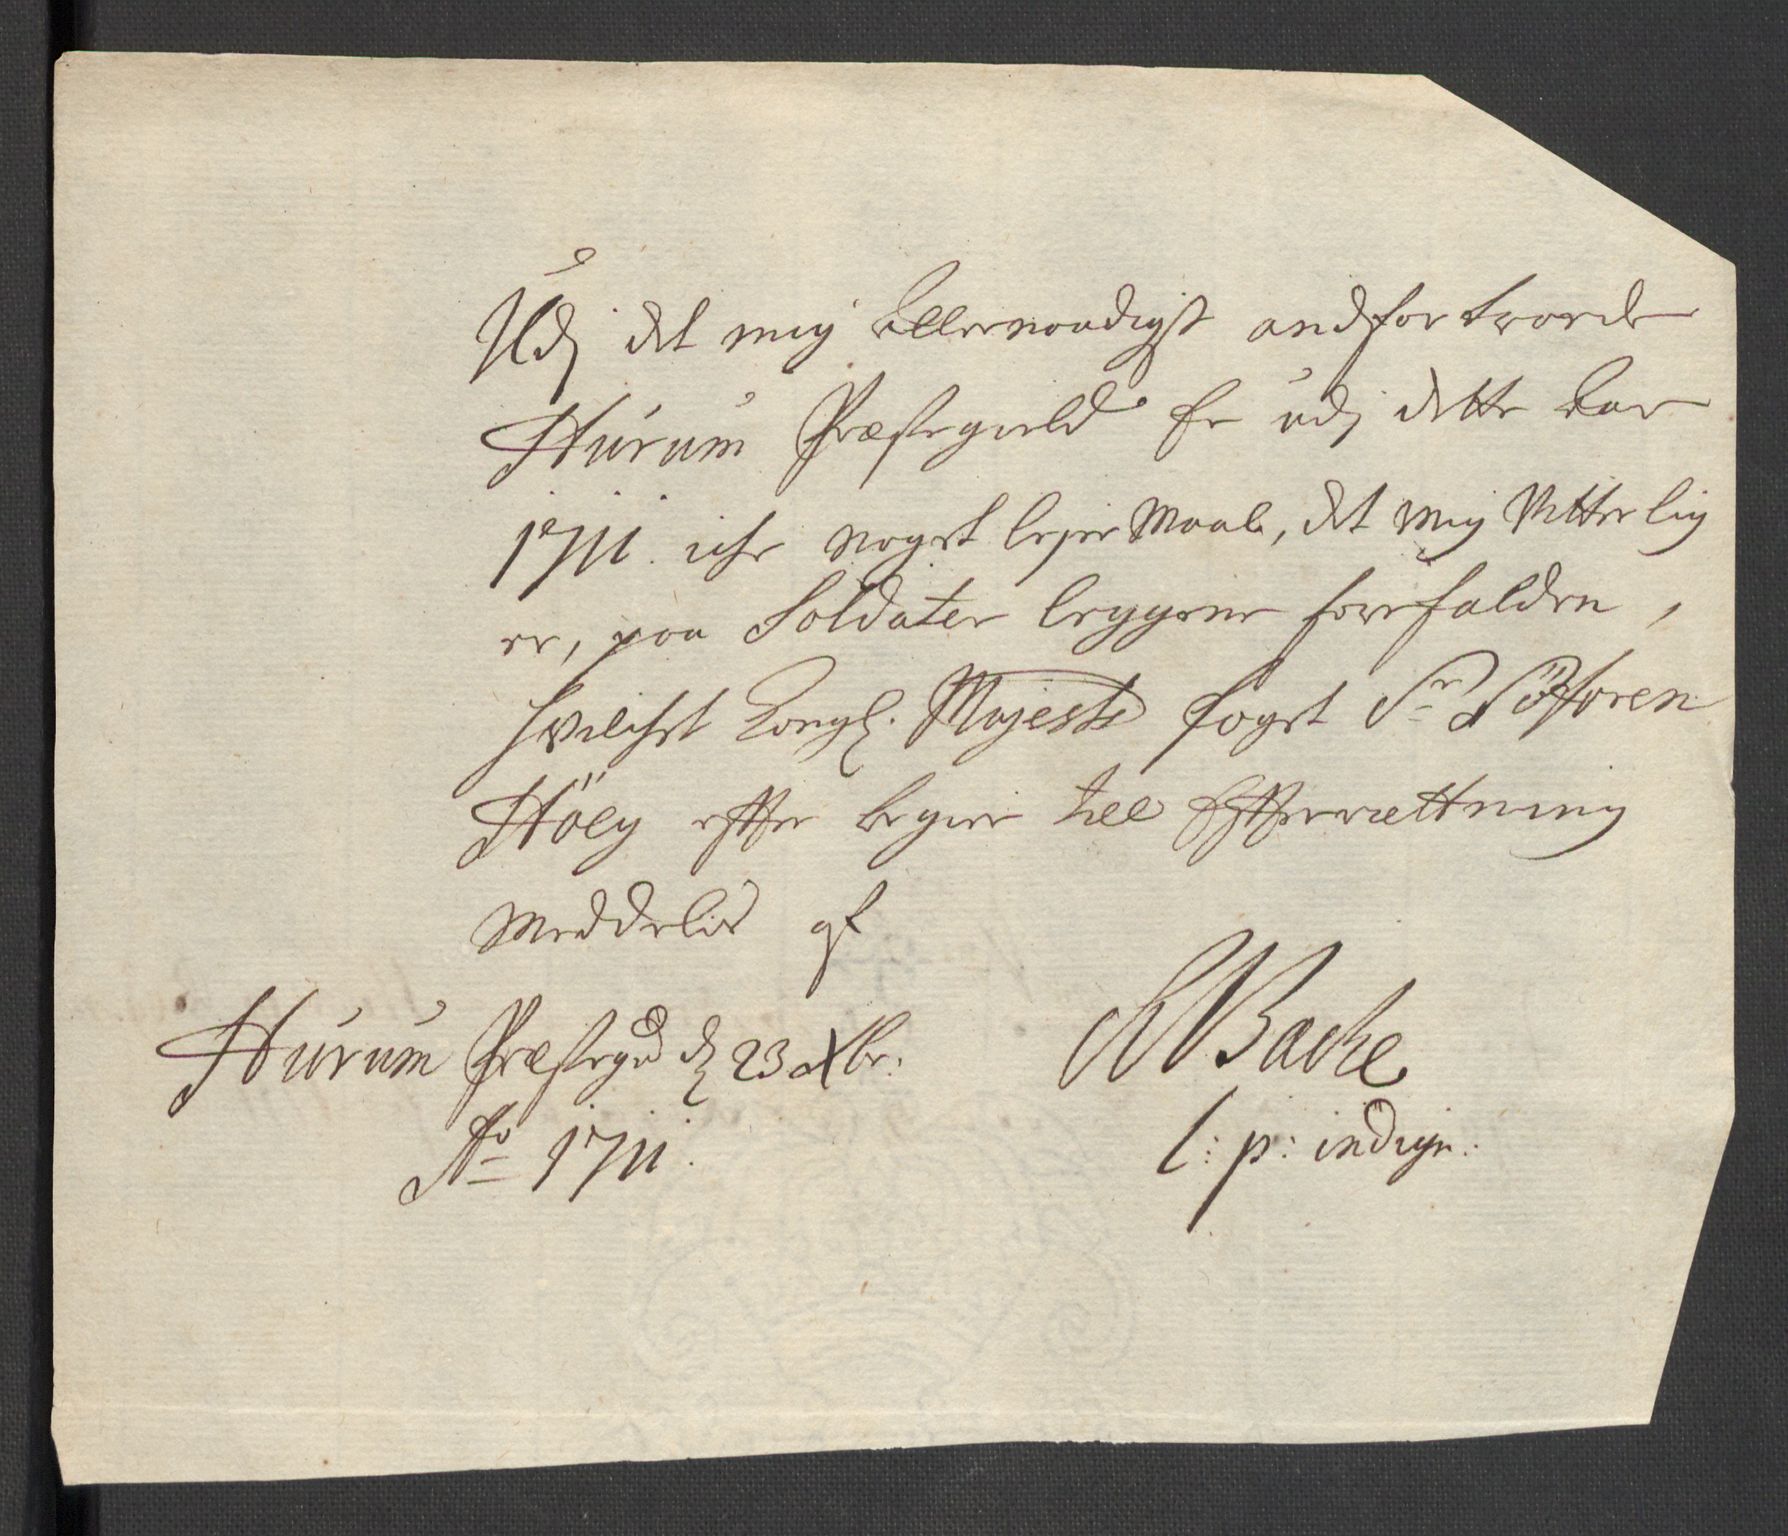 Udj det mig allernaadigst andfortroede
Hurum Præstegield Er udj dette aar
1711. iche noget lejermaal, det mig Vitterlig
er, paa Soldater leggene forefalden,
hvilchet Kongl. Majests foget Sr Söfren
Höeg effter begier till Efterrættning
Meddelis af
Hurum Præstegrd d 23 Xbr.
Ao 1711.
Bache
l: p: indign: